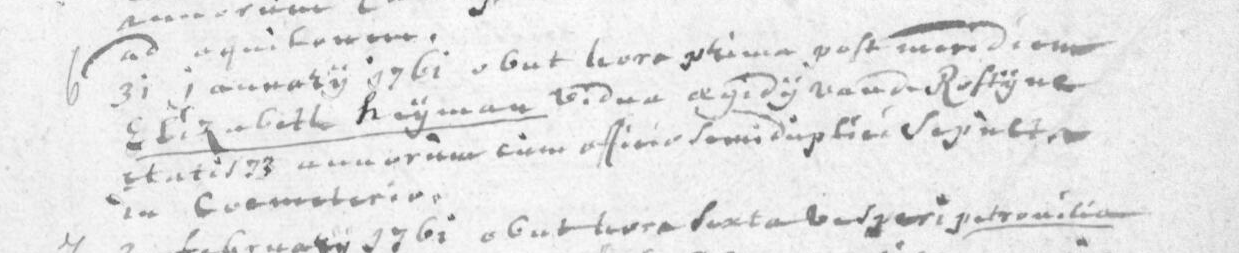 annorum
ad aquilonem.
6 31 january 1761 obiit hora prima post meridiem
Elizabeth heyman vidua ægidÿ vande Rostÿne
ætatis 73 annorum cum officio semiduplici sepulta
in Coemeterio.
7 2 februarÿ 1761 obiit hora sexta vesperi petronilia